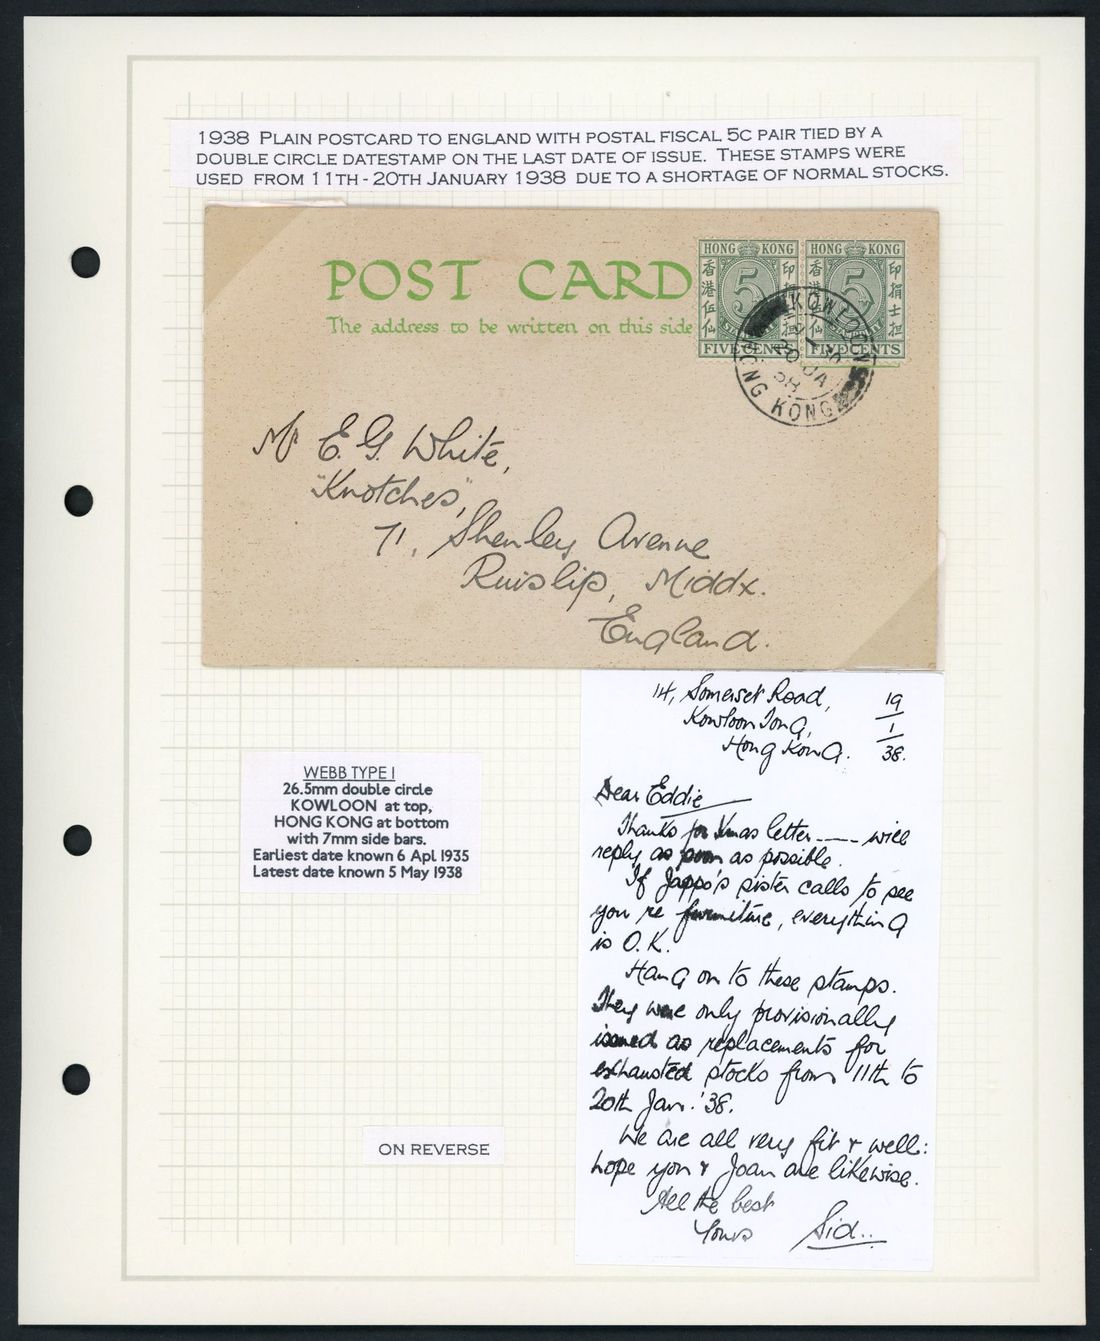 1938 PLAIN POSTCARD TO ENGLAND WITH POSTAL FISCAL 5C PAIR TIED BY A
DOUBLE CIRCLE DATESTAMP ON THE LAST DATE OF ISSUE. THESE STAMPS WERE
USED FROM 11TH - 20TH JANUARY 1938 DUE TO A SHORTAGE OF NORMAL STOCKS.
POST CARD
The address to be written on this side
HONG KONG
香港伍仙
印捐士担
5
FIVE CENTS
HONG KONG
香港伍仙
印捐士担
5
FIVE CENTS
KOWLOON
20 JA
38
HONG KONG
Mr E. G. White,
"Knotches",
71, Shenley Avenue
Ruislip, Middx.
England.
14, Somerset Road,
Kowloon Tong,
Hong Kong.
19
1
38.
Dear Eddie
Thanks for Xmas letter ---- will
reply as soon as possible.
If Jappo's sister calls to see
you re furniture, everything
is O.K.
Hang on to these stamps.
They were only provisionally
issued as replacements for
exhausted stocks from 11th to
20th Jan. '38.
We are all very fit & well:
hope you & Joan are likewise.
All the best
Yours Sid..
WEBB TYPE I
26.5mm double circle
KOWLOON at top,
HONG KONG at bottom
with 7mm side bars.
Earliest date known 6 Apl 1935
Latest date known 5 May 1938
ON REVERSE